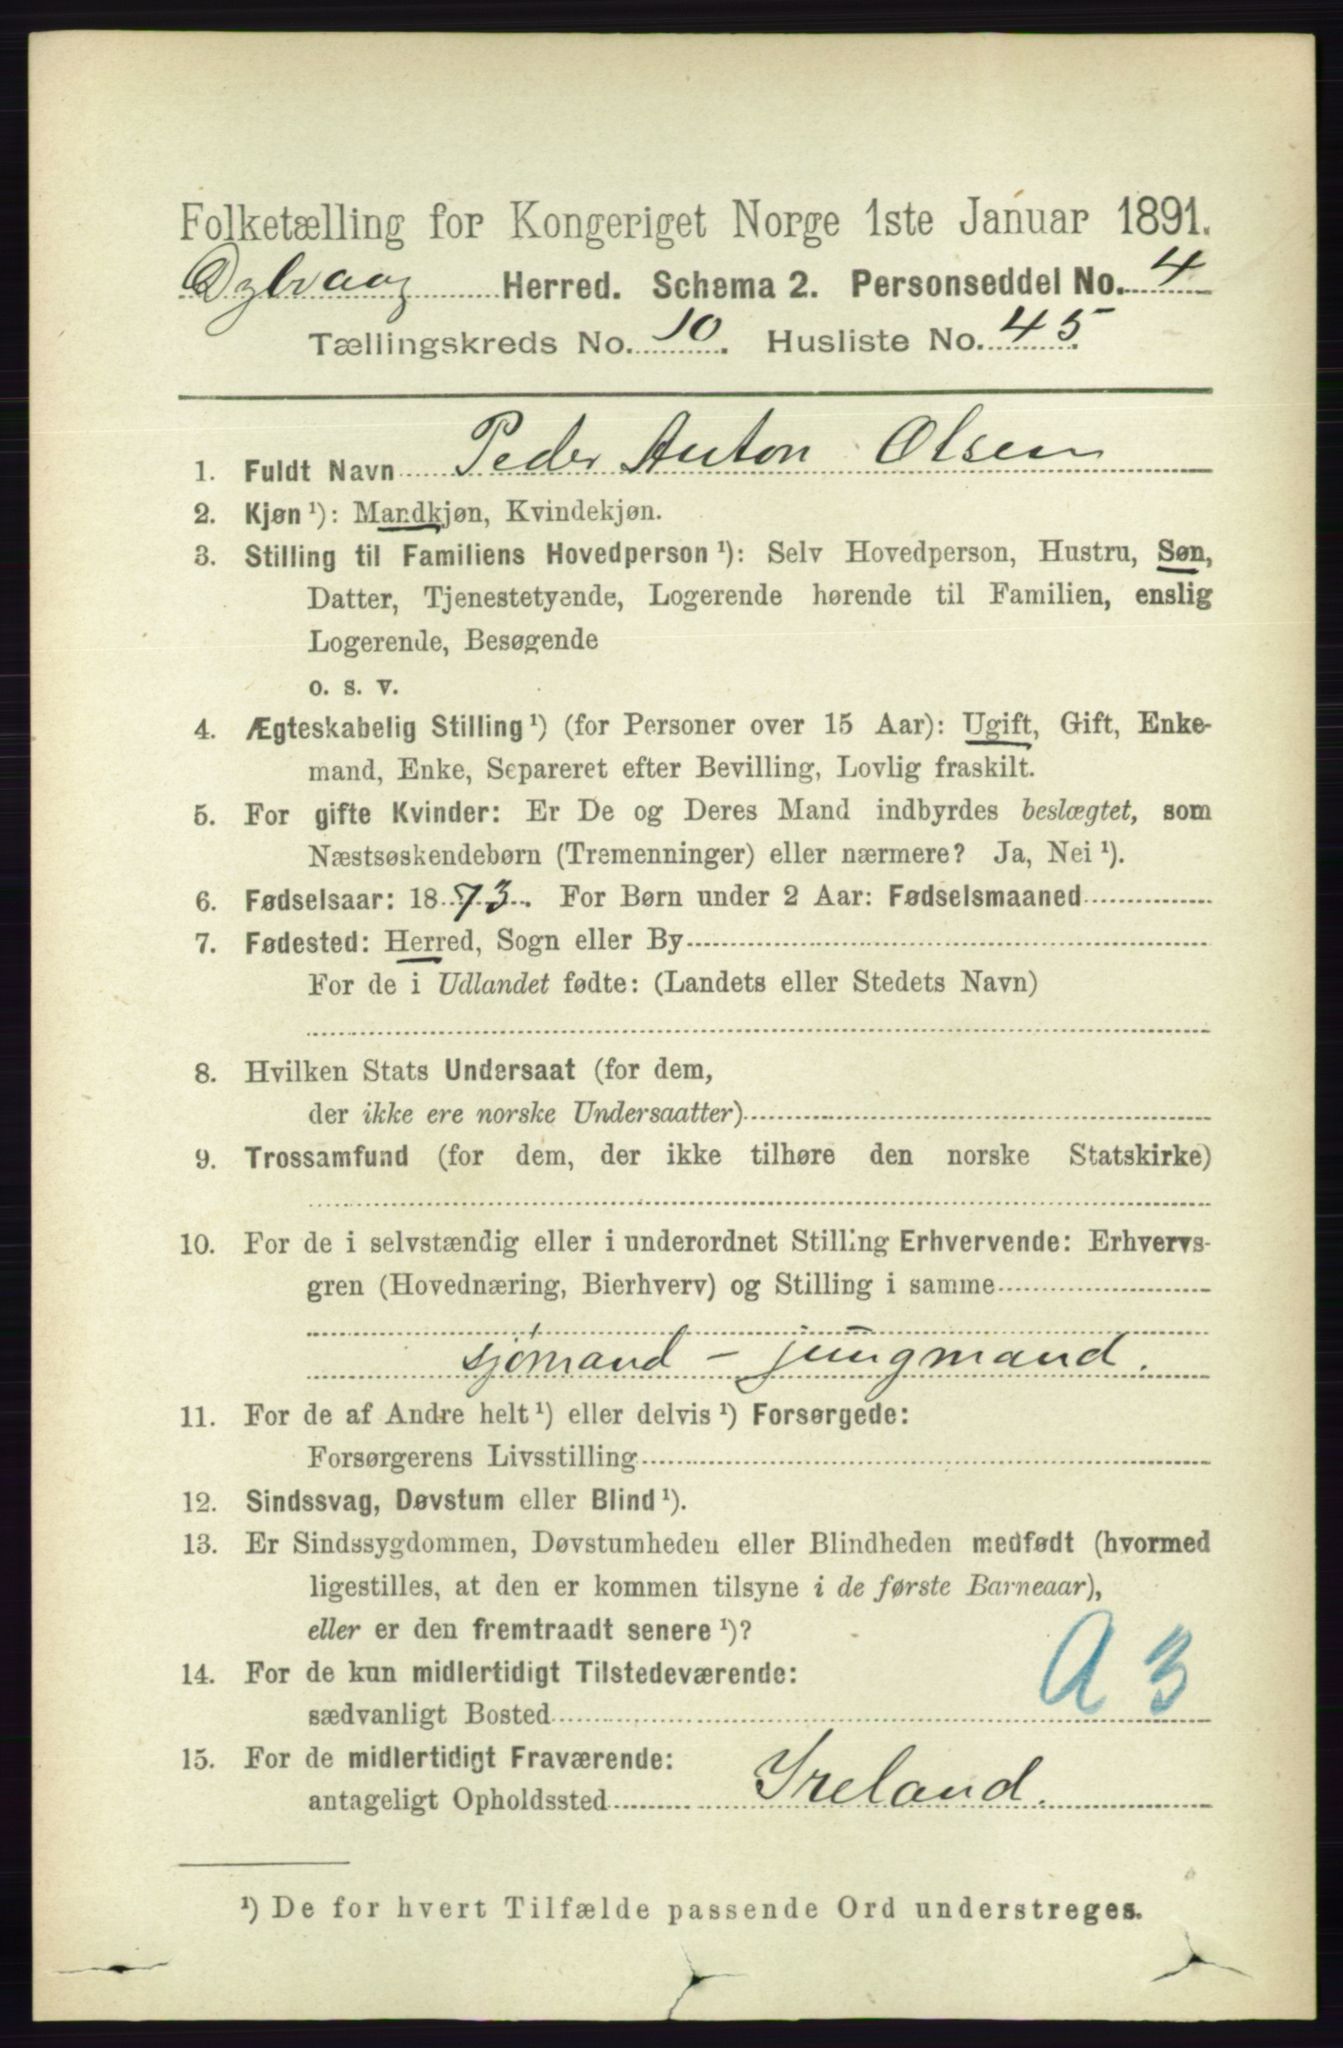 Folketælling for Kongeriget Norge 1ste Januar 1891.
Dybvaag Herred. Schema 2. Personseddel No. 4
Tællingskreds No. 10. Husliste No. 45.
1. Fuldt Navn Peder Anton Olsen
2. Kjøn ¹): Mandkjøn, Kvindekjøn.
3. Stilling til Familiens Hovedperson ¹): Selv Hovedperson, Hustru, Søn,
Datter, Tjenestetyende, Logerende hørende til Familien, enslig
Logerende, Besøgende
o. s. v.
4. Ægteskabelig Stilling ¹) (for Personer over 15 Aar): Ugift, Gift, Enke-
mand, Enke, Separeret efter Bevilling, Lovlig fraskilt.
5. For gifte Kvinder: Er De og Deres Mand indbyrdes beslægtet, som
Næstsøskendebørn (Tremenninger) eller nærmere? Ja, Nei ¹).
6. Fødselsaar: 1873. For Børn under 2 Aar: Fødselsmaaned
7. Fødested: Herred, Sogn eller By
For de i Udlandet fødte: (Landets eller Stedets Navn)
8. Hvilken Stats Undersaat (for dem,
der ikke ere norske Undersaatter)
9. Trossamfund (for dem, der ikke tilhøre den norske Statskirke)
10. For de i selvstændig eller i underordnet Stilling Erhvervende: Erhvervs-
gren (Hovednæring, Bierhverv) og Stilling i samme
sjømand - jungmand.
11. For de af Andre helt ¹) eller delvis ¹) Forsørgede:
Forsørgerens Livsstilling
12. Sindssvag, Døvstum eller Blind ¹).
13. Er Sindssygdommen, Døvstumheden eller Blindheden medfødt (hvormed
ligestilles, at den er kommen tilsyne i de første Barneaar),
eller er den fremtraadt senere ¹)?
A 3
14. For de kun midlertidigt Tilstedeværende:
sædvanligt Bosted
15. For de midlertidigt Fraværende:
antageligt Opholdssted Ireland.
¹) De for hvert Tilfælde passende Ord understreges.